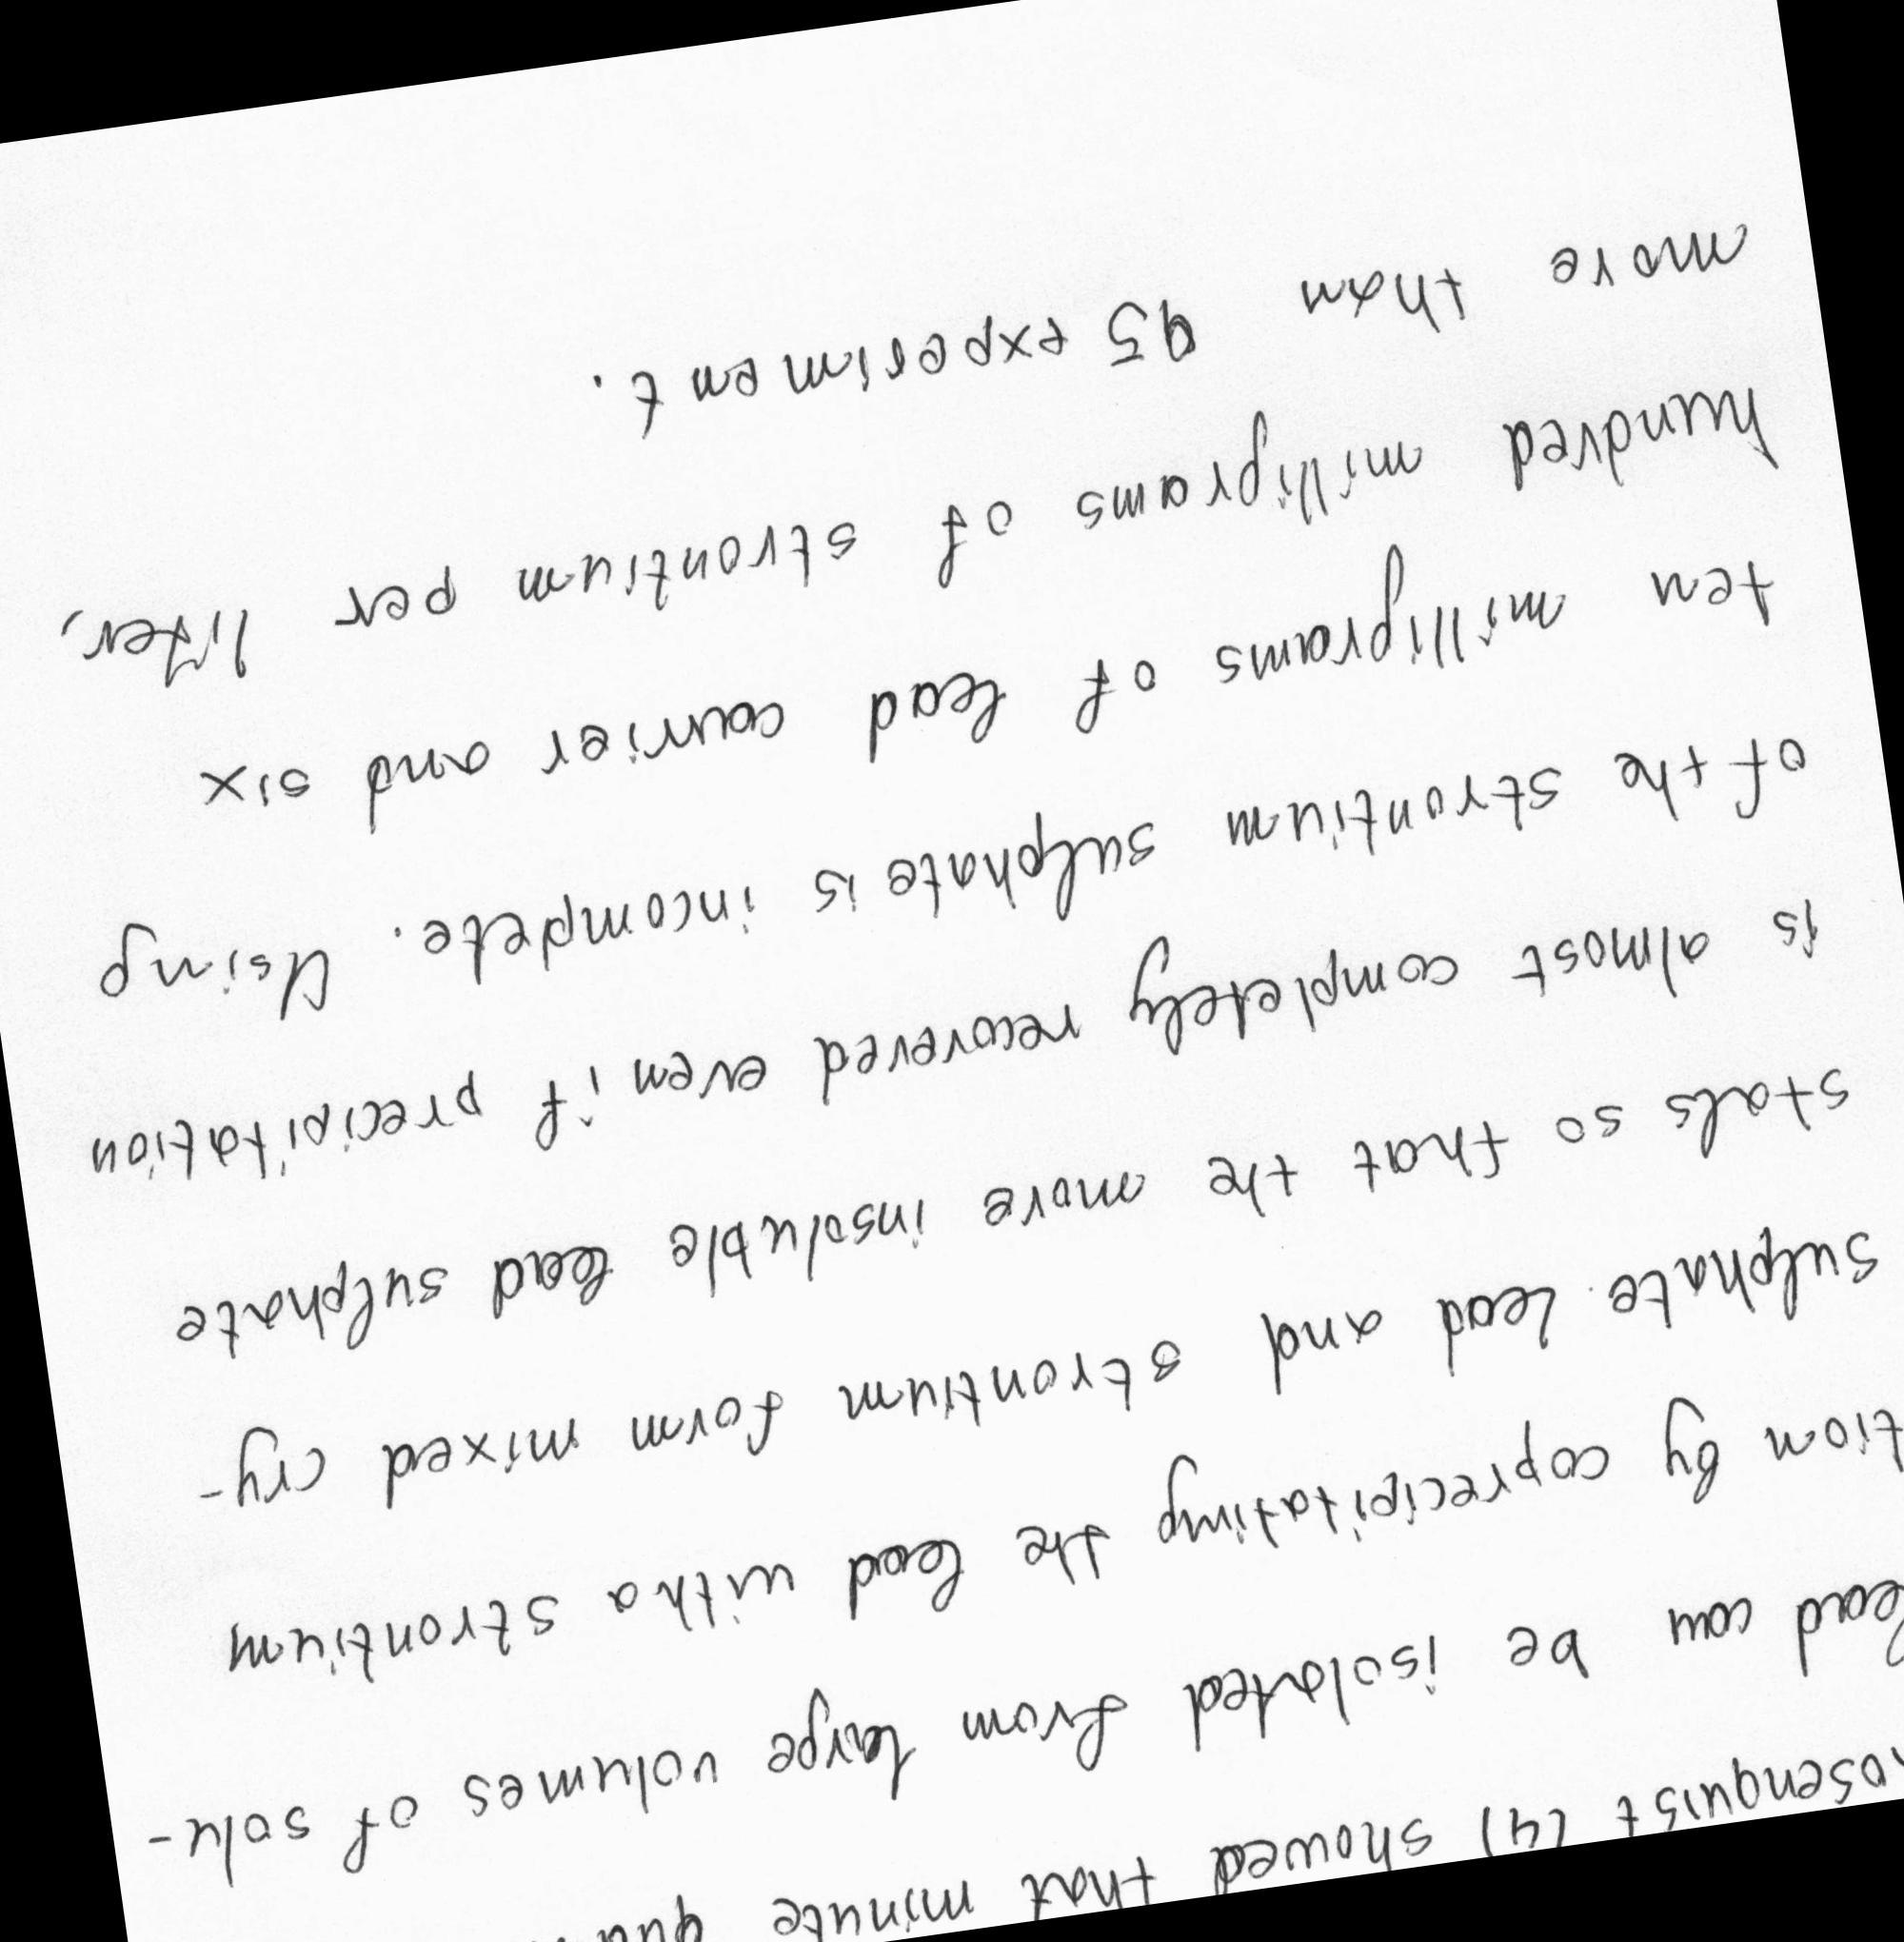 osenquist (4) showed that minute
lead can be isolated from large volumes of solu-
tion by coprecipitating the lead with a strontium
sulphate. Lead and strontium form mixed cry-
stals so that the more insoluble lead sulphate
is almost completely recovered even if precipitation
of the strontium sulphate is incomplete. Using
ten milligrams of lead carrier and six
hundred milligrams of strontium per liter,
more than 95 experiment.